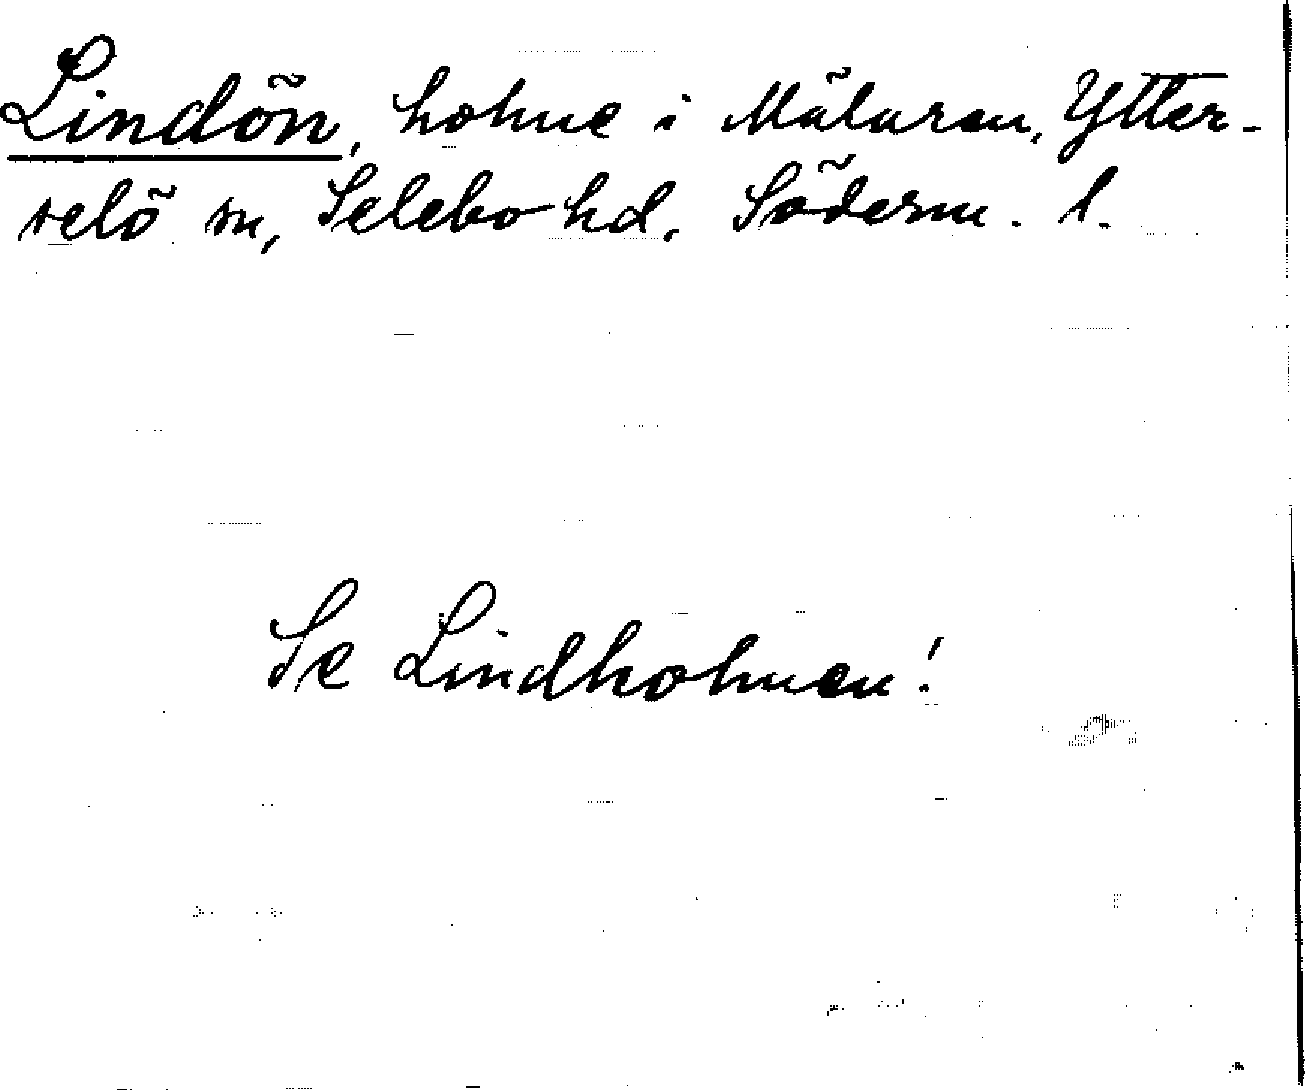 Lindön, holme i Mälaren, Ytter-
selö sn, Selebo hd. Söderm. l.
Se Lindholmen!